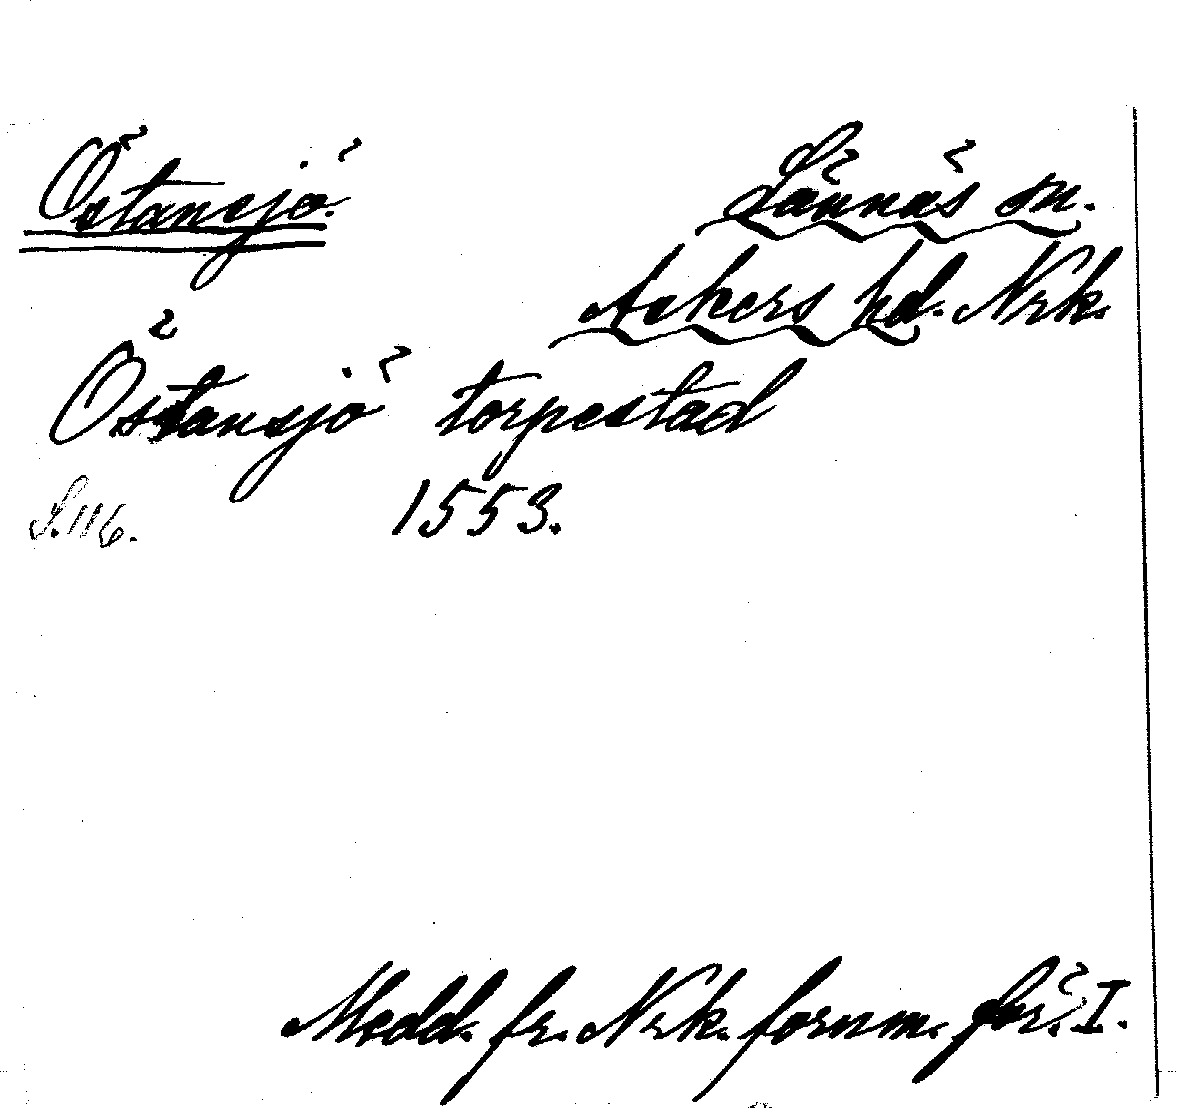 Östansjö.
Lännäs sn.
Askers hd. Nrk.
Östansjö torpestad
S. 116.
1553.
Medd. fr. Nrk. fornm. för. I.